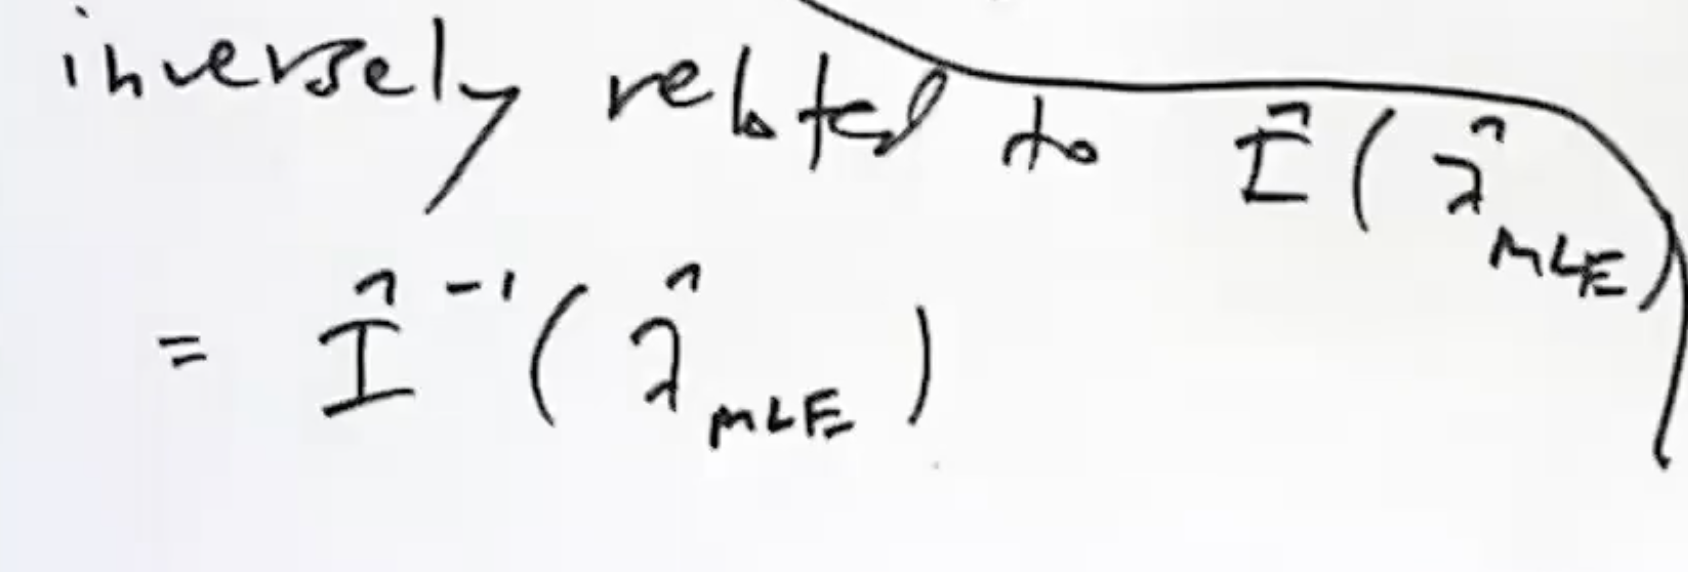 inversely related to Î ( λ̂ MLE )
= Î⁻¹ ( λ̂ MLE )